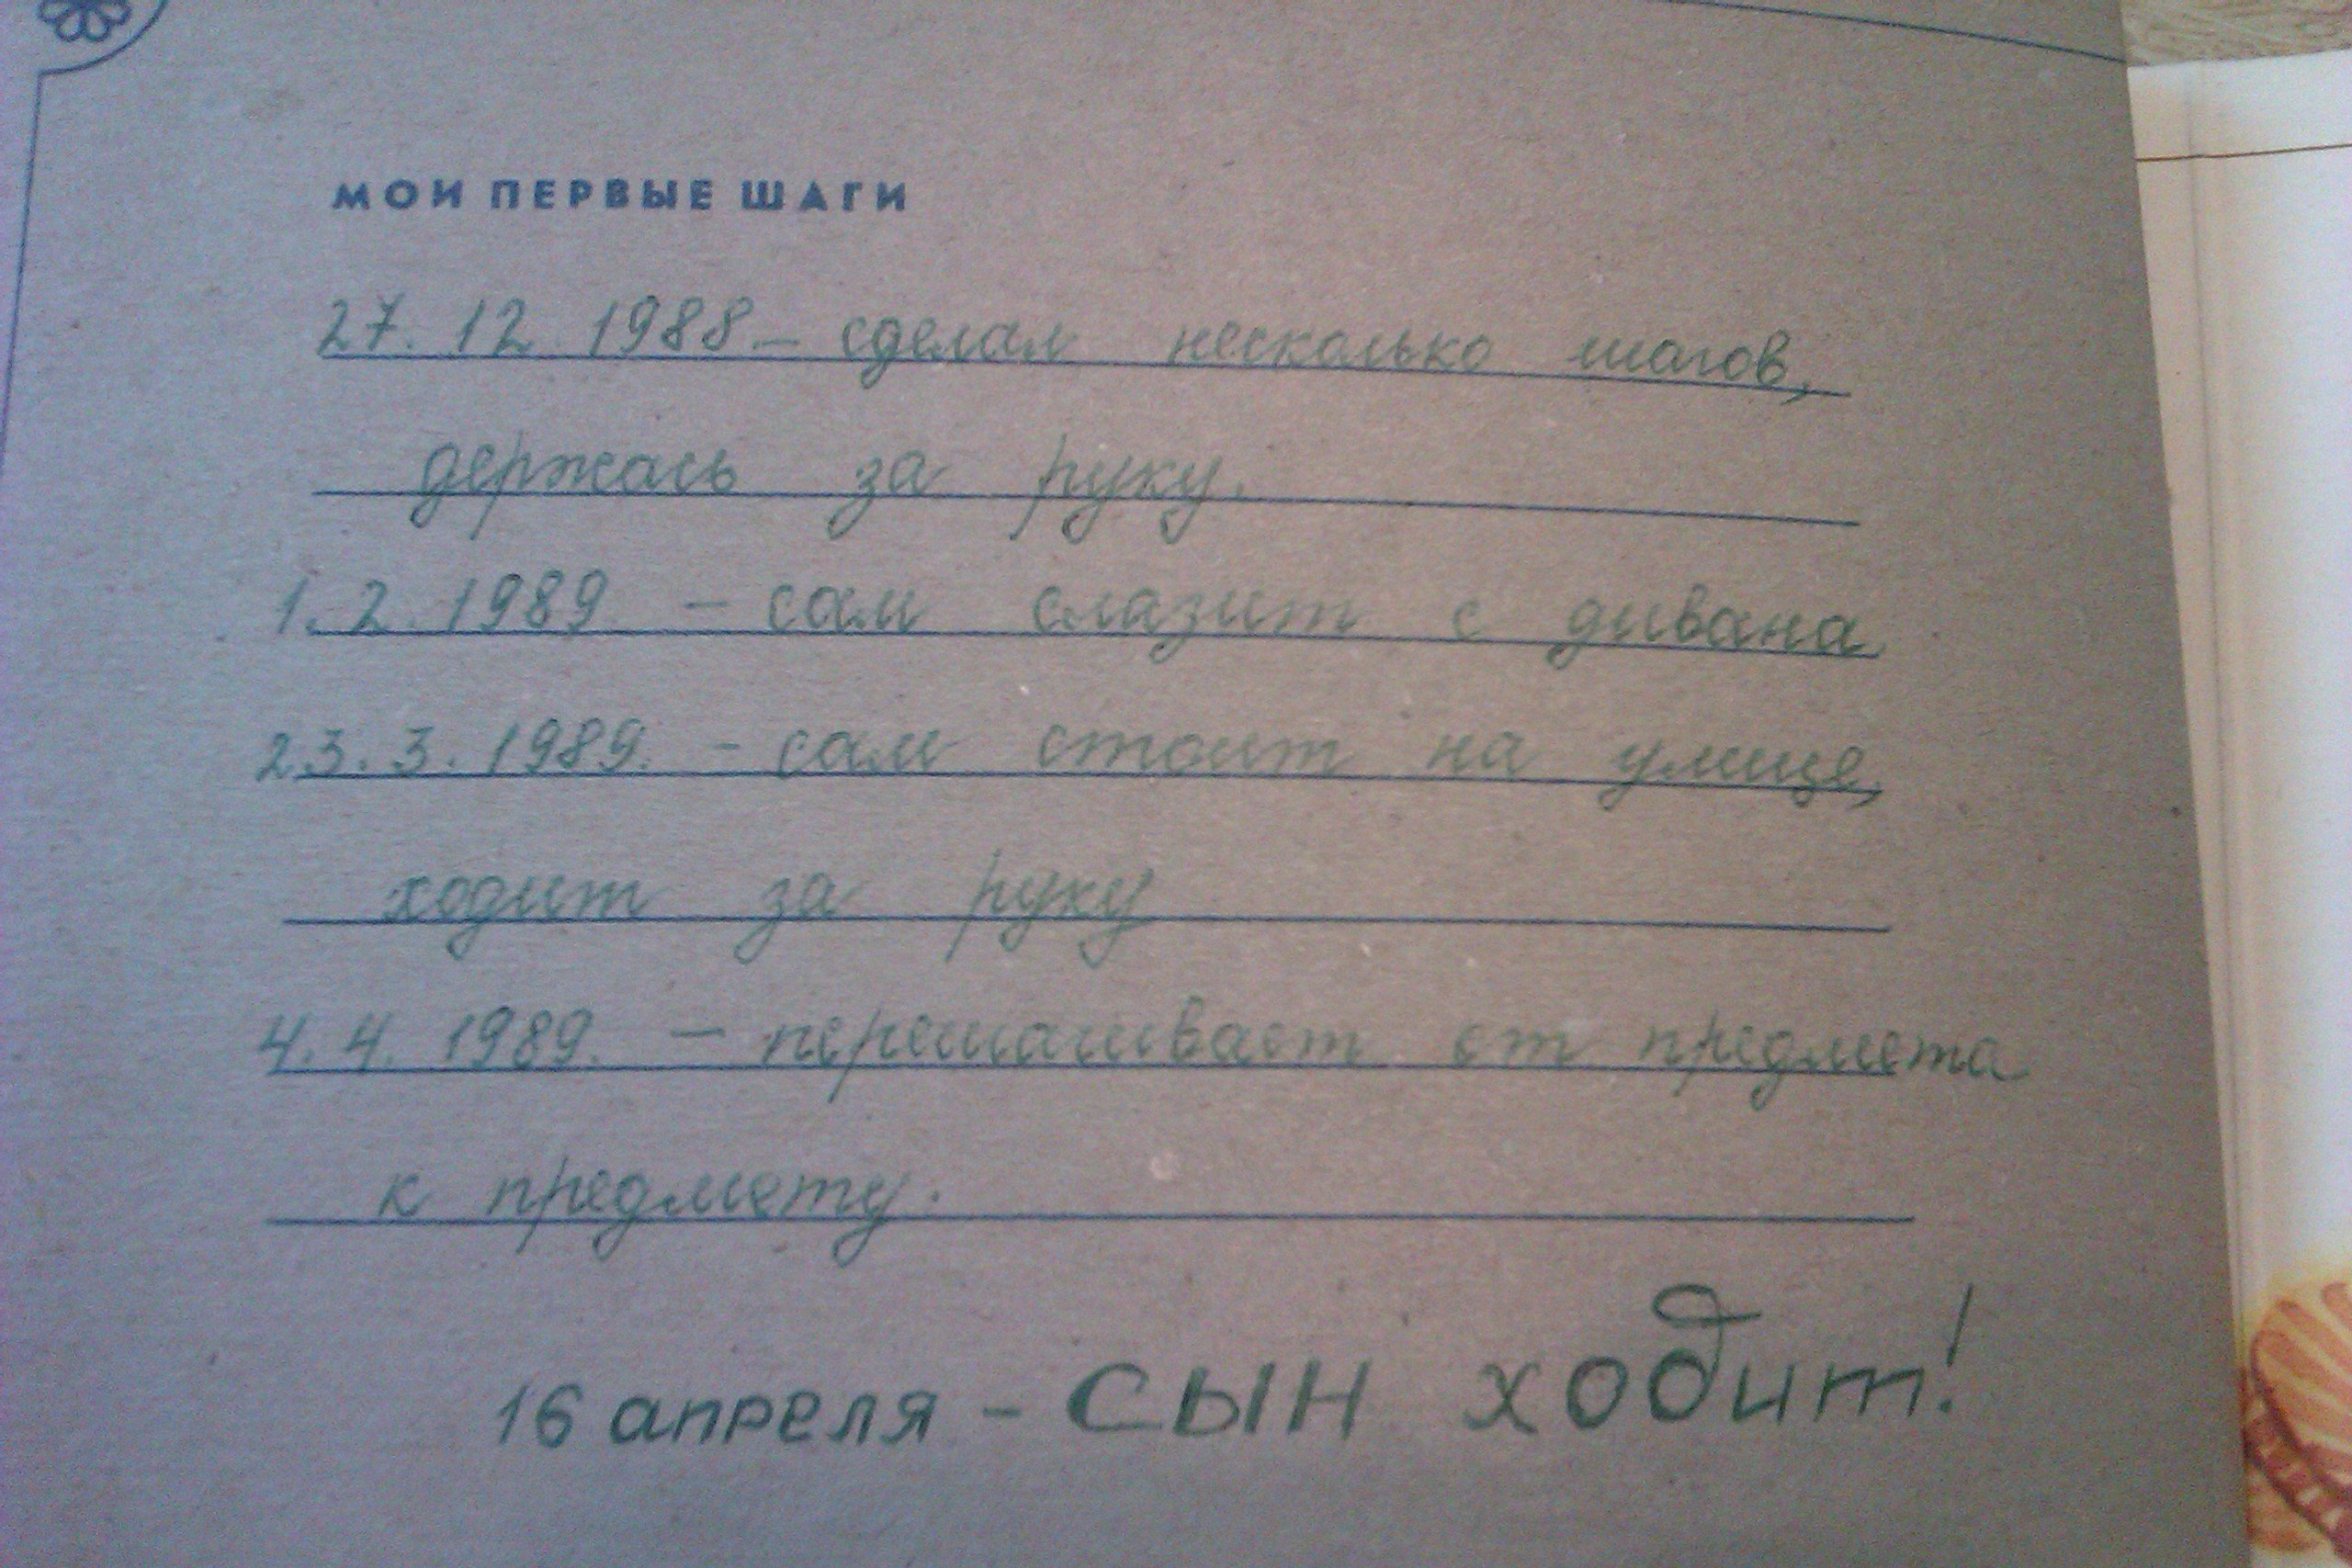 МОИ ПЕРВЫЕ ШАГИ
27. 12. 1988 – сделал несколько шагов,
держась за руку.
1. 2. 1989 – сам слазит с дивана
23. 3. 1989. – сам стоит на улице,
ходит за руку
4. 4. 1989. – перешагивает от предмета
к предмету.
16 апреля – СЫН ходит!